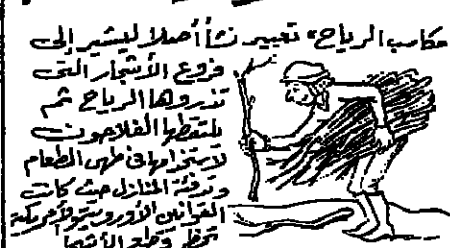 مكاسب الرياح» تعبير نشأ أصلا ليشير إلى
فروع الأشجار التى
تذروها الرياح ثم
يلتقطها الفلاحون
لاستخدامها فى طهى الطعام
وتدفئة المنازل حيث كانت
القوانين الأوروبية والأمريكية
تحظر قطع الأشجار